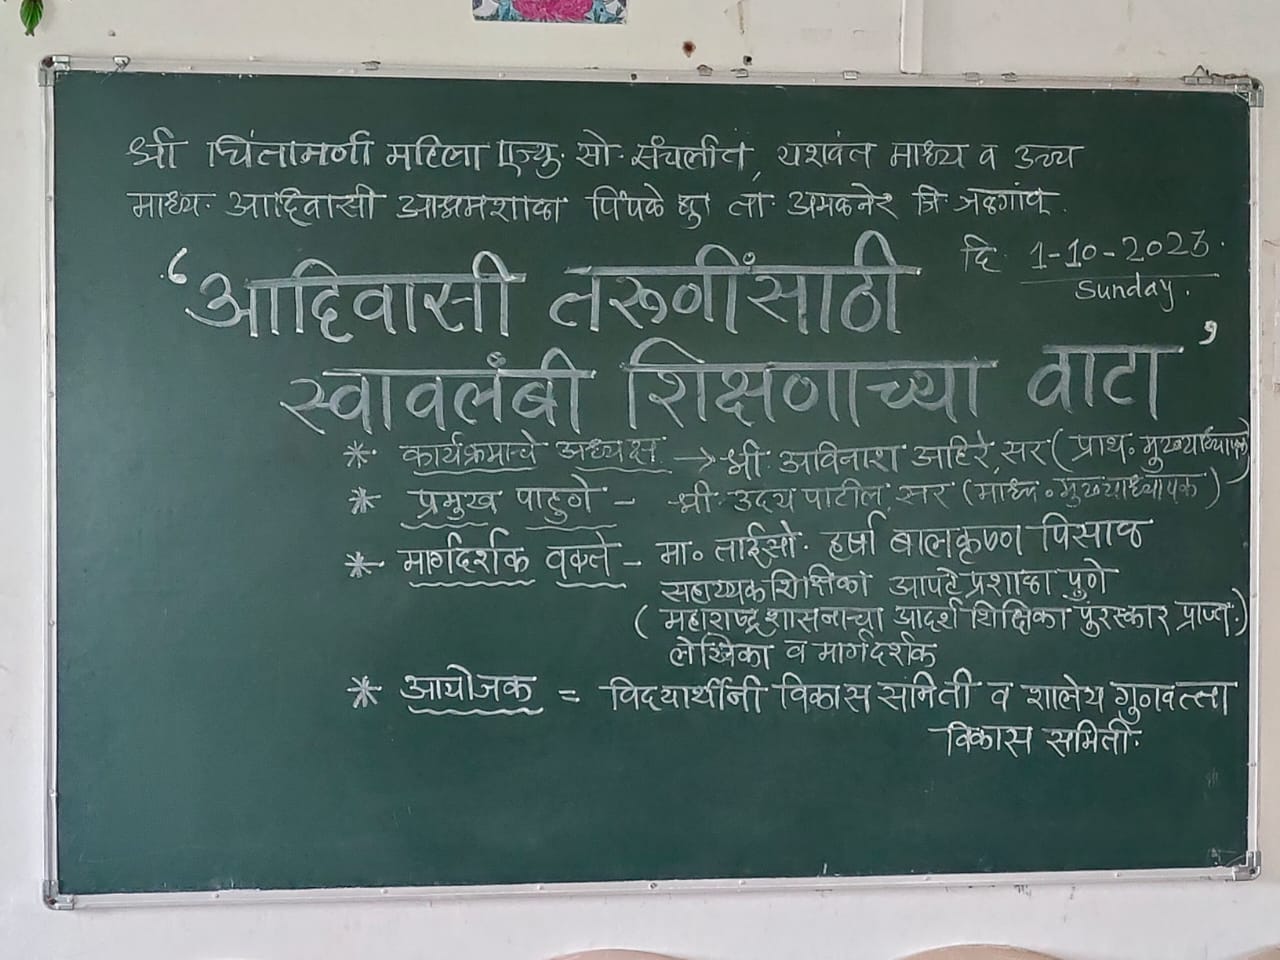 श्री चिंतामणी महिला एज्यु. सो. संचलीत, यशवंत माध्य व उच्च
माध्य. आदिवासी आश्रमशाळा पिंपळे बु ता. अमळनेर जि जळगांव.
दि. 1-10-2023.
Sunday.
‘आदिवासी तरूणींसाठी
स्वावलंबी शिक्षणाच्या वाटा’
* कार्यक्रमाचे अध्यक्ष → श्री. अविनाश अहिरे सर (प्राथ. मुख्याध्यापक)
* प्रमुख पाहुणे - श्री उदय पाटील सर (माध्य. मुख्याध्यापक)
* मार्गदर्शक वक्ते - मा. ताईसो. हर्षा बाळकृष्ण पिसाळ
सहाय्यक शिक्षिका आपटे प्रशाळा पुणे
(महाराष्ट्र शासनाचा आदर्श शिक्षिका पुरस्कार प्राप्त.)
लेखिका व मार्गदर्शक
* आयोजक = विद्यार्थीनी विकास समिती व शालेय गुणवत्ता
विकास समिती.